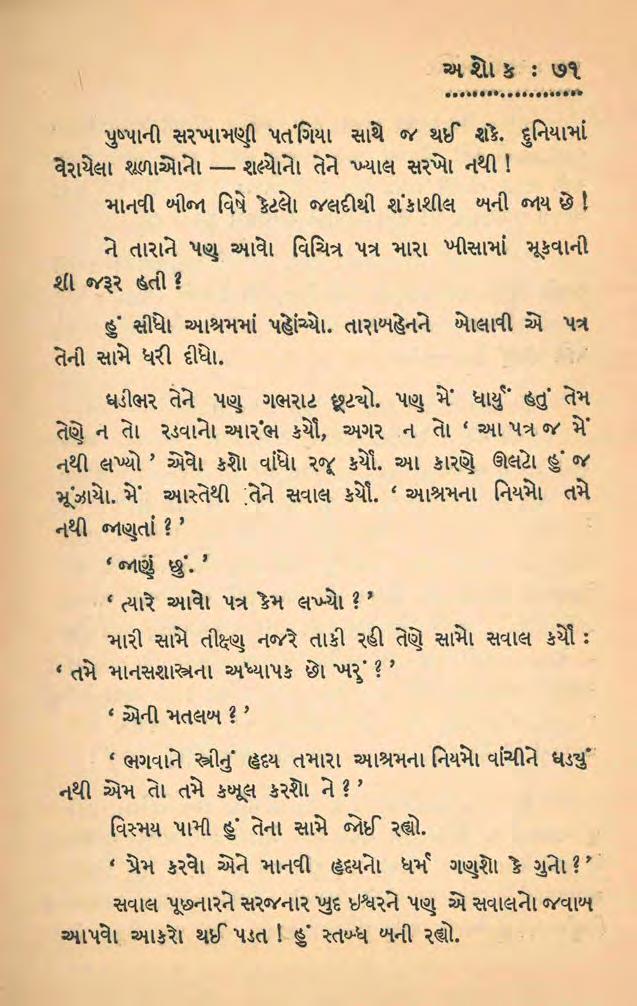 અશોક : ૭૧
પુષ્પાની સરખામણી પતંગિયા સાથે જ થઈ શકે. દુનિયામાં
વેરાયેલા શૂળાઓનો — શલ્યોનો તેને ખ્યાલ સરખો નથી !
માનવી બીજા વિષે કેટલો જલદીથી શંકાશીલ બની જાય છે !
ને તારાને પણ આવો વિચિત્ર પત્ર મારા ખીસામાં મૂકવાની
શી જરૂર હતી ?
હું સીધો આશ્રમમાં પહોંચ્યો. તારાબહેનને બોલાવી એ પત્ર
તેની સામે ધરી દીધો.
ઘડીભર તેને પણ ગભરાટ છૂટ્યો. પણ મેં ધાર્યું હતું તેમ
તેણે ન તો રડવાનો આરંભ કર્યો, અગર ન તો ‘ આ પત્ર જ મેં
નથી લખ્યો ’ એવો કશો વાંધો રજૂ કર્યો. આ કારણે ઊલટો હું જ
મૂંઝાયો. મેં આસ્તેથી તેને સવાલ કર્યો. ‘ આશ્રમના નિયમો તમે
નથી જાણતાં ? ’
‘ જાણું છું. ’
‘ ત્યારે આવો પત્ર કેમ લખ્યો ? ’
મારી સામે તીક્ષ્ણ નજરે તાકી રહી તેણે સામો સવાલ કર્યો :
‘ તમે માનસશાસ્ત્રના અધ્યાપક છો ખરું ? ’
‘ એની મતલબ ? ’
‘ ભગવાને સ્ત્રીનું હૃદય તમારા આશ્રમના નિયમો વાંચીને ઘડ્યું
નથી એમ તો તમે કબૂલ કરશો ને ? ’
વિસ્મય પામી હું તેના સામે જોઈ રહ્યો.
‘ પ્રેમ કરવો એને માનવી હૃદયનો ધર્મ ગણશો કે ગુનો ? ’
સવાલ પૂછનારને સરજનાર ખુદ ઈશ્વરને પણ એ સવાલનો જવાબ
આપવો આકરો થઈ પડત ! હું સ્તબ્ધ બની રહ્યો.